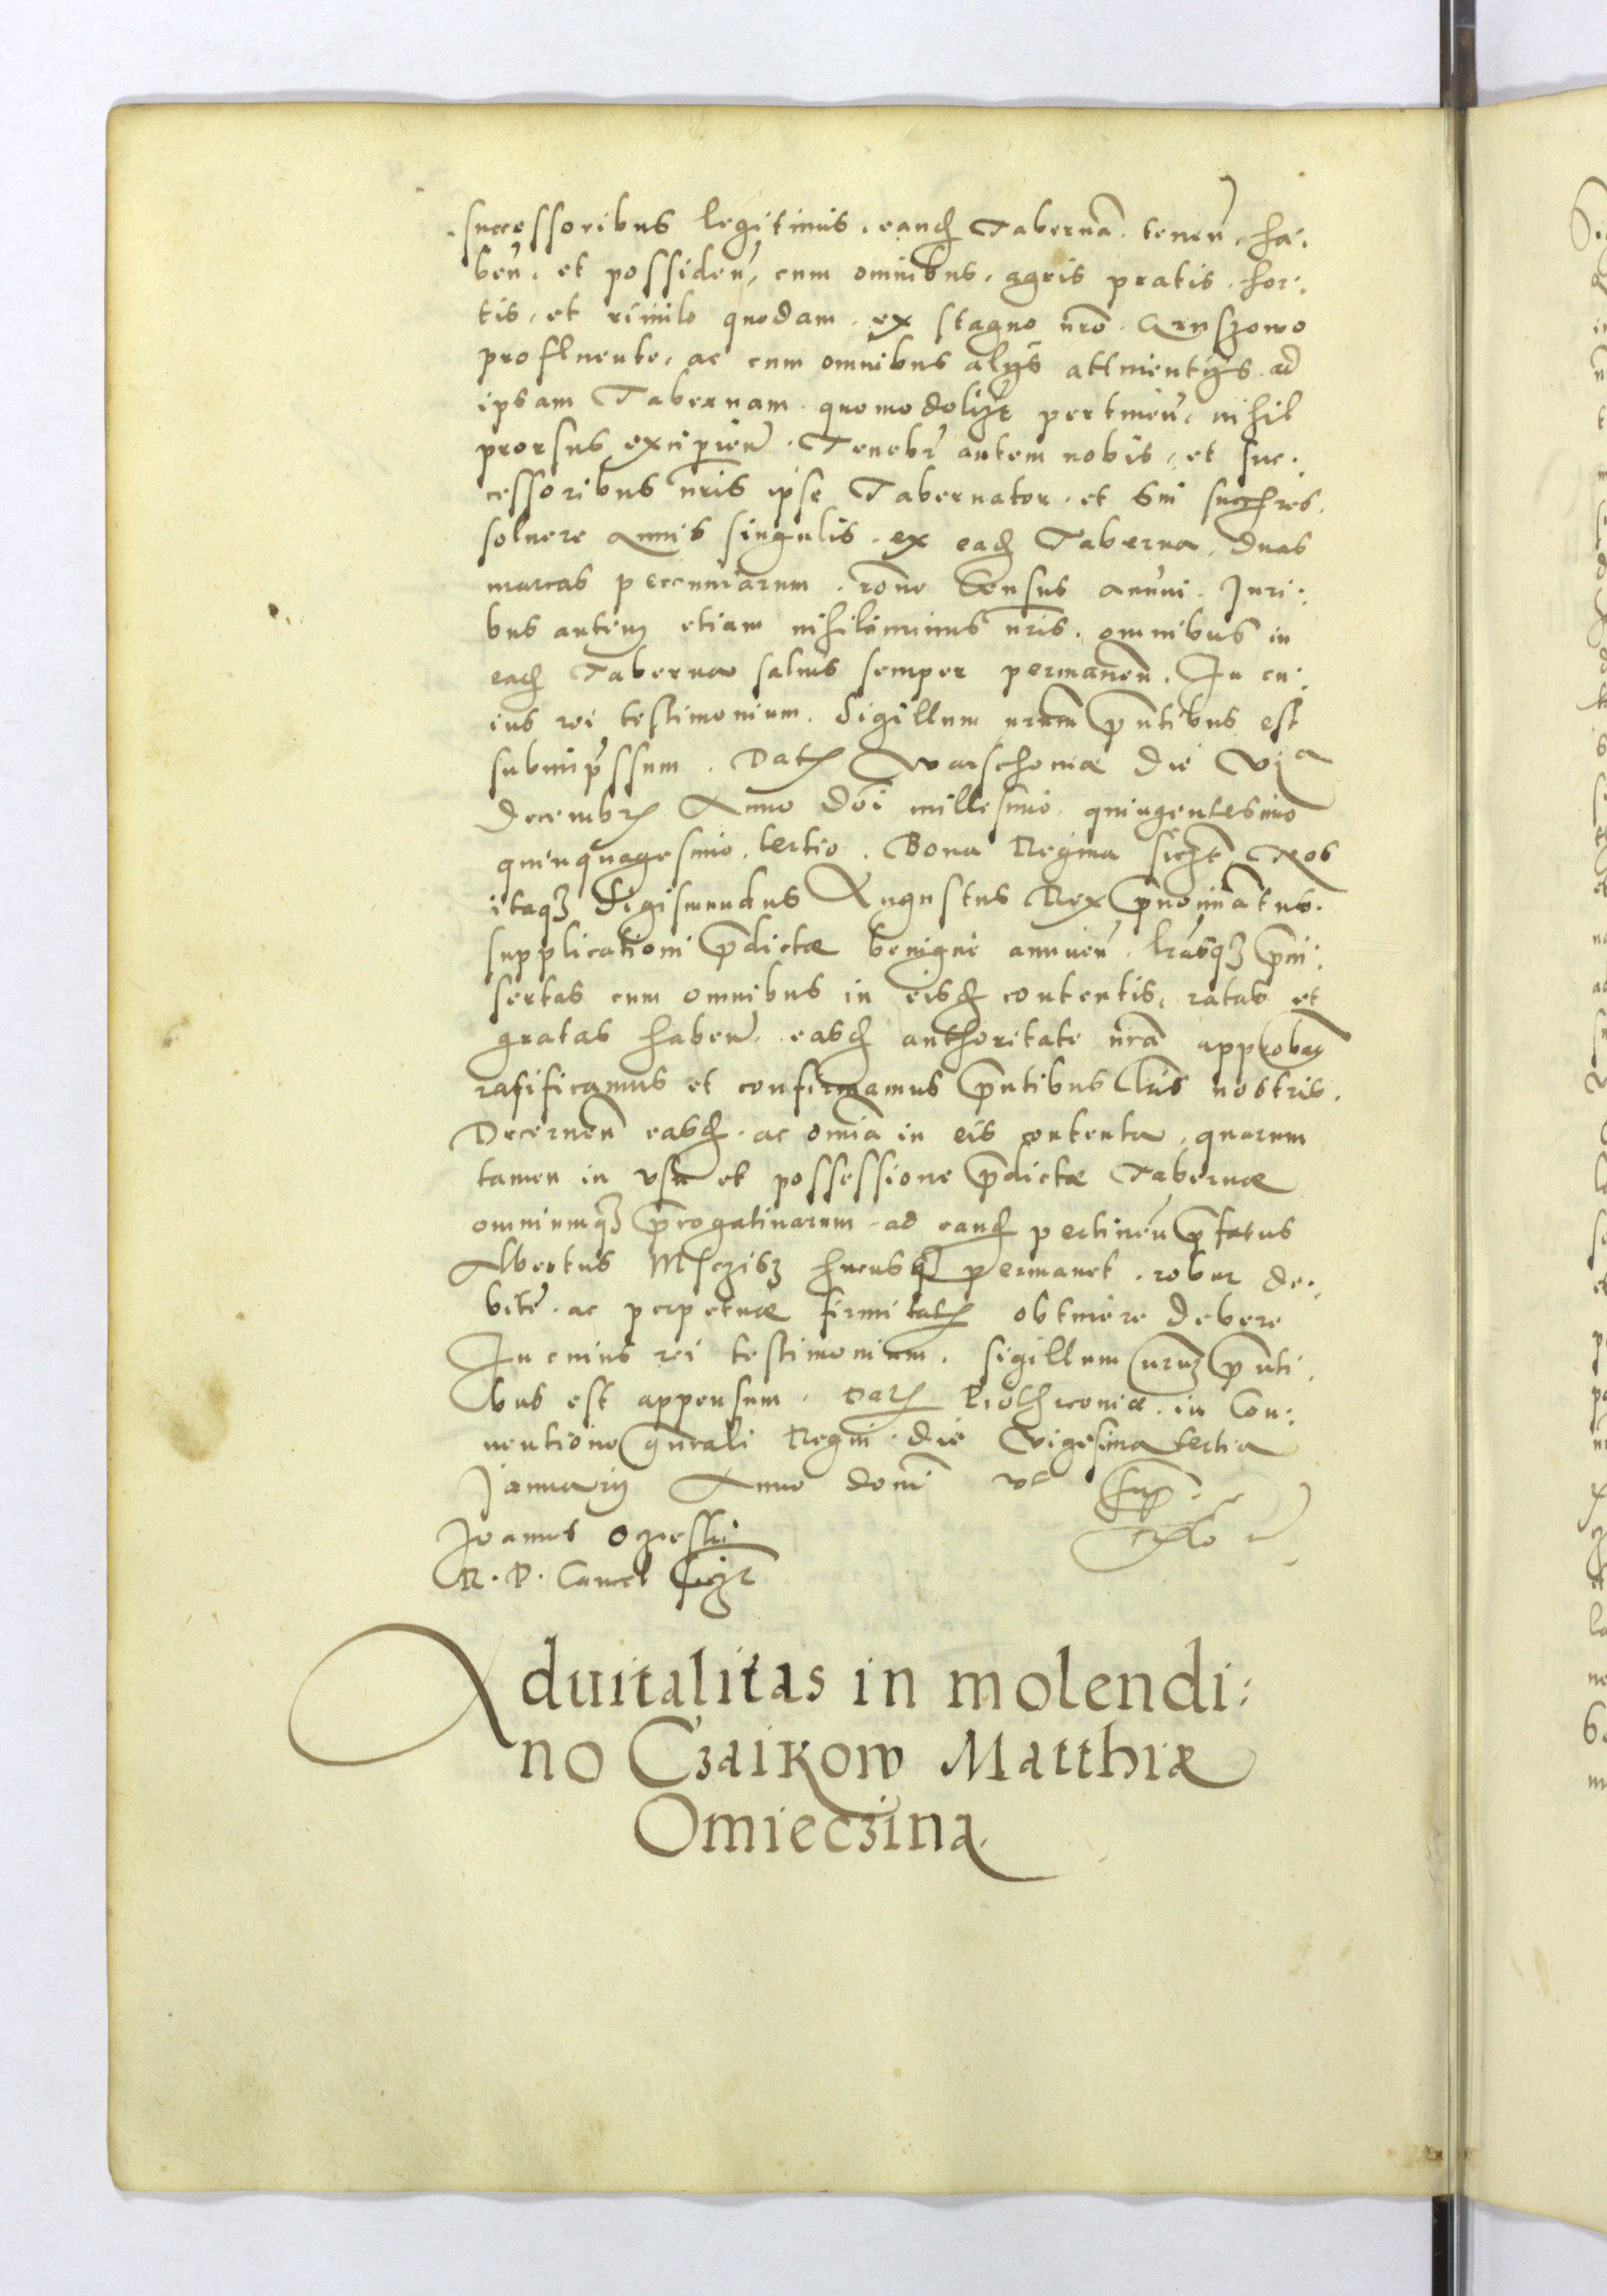 successoribus legitimis, eandē Tabernā tenēn, ha:
ben̄, et possiden̄, cum omnibus agris pratis, hor:
tis, et riuulo quodam ex stagno nr̄o
profluente, ac cum omnibus alijs attinentijs ad
ipsam Tabernam quomodolȝt pertinen̄, nihil
prorsus excipien̄. Tenebr̄ autem nobis, et suc:
cessoribus nr̄is ipse Tabernator et sui succres.
soluere Annis singulis ex eadē Taberna, duas
marcas pecuniarum rōne Census annui. Juri:
bus autem etiam nihilominus nr̄is omnibus in
eadē Taberna saluis semper permanen̄. In cu:
ius rei testimonium. Sigillum nrum pn̄tibus est
subimp̄ssum. Datē Warschouiæ die vjᵃ
Decembrē Anno Doī millesimo quingentesimo
quinquagesimo tertio. Bona Regina ss̄czt. Nos
itaqȝ Sigismundus Augustus Rex p̄nominatus.
supplicationi p̄dictæ benigne annuen̄. lr̄asqȝ p̄in:
sertas cum omnibus in eisdē contentis, ratas et
gratas haben̄. easdē authoritate nr̄a approbam̄
ratificamus et confirmamus pn̄tibus lr̄is nostris.
Decernen̄ easdē ac omīa in eis contenta, quarum
tamen in vsu et possessione p̄dictæ Tabernæ
omniumqȝ p̄rogatiuarum ad eandē pertinen̄ p̄fatus
Albertus Msczisz hucusqȝ permanet. robur de:
bite ac perpetuæ firmitatē obtinere debere
In cuius rei testimonium. Sigillum nrum pn̄ti
bus est appensum. Datē Piothrcouiæ in Con:
uentione gn̄rali Regni die vigesima tertia
Januarij Anno domī vᵗ sup̄.
Joannes Oczieski
R. P. Cancel sszt
Aduitalitas in molendi:
no Czaikow Matthiæ
Omieczina